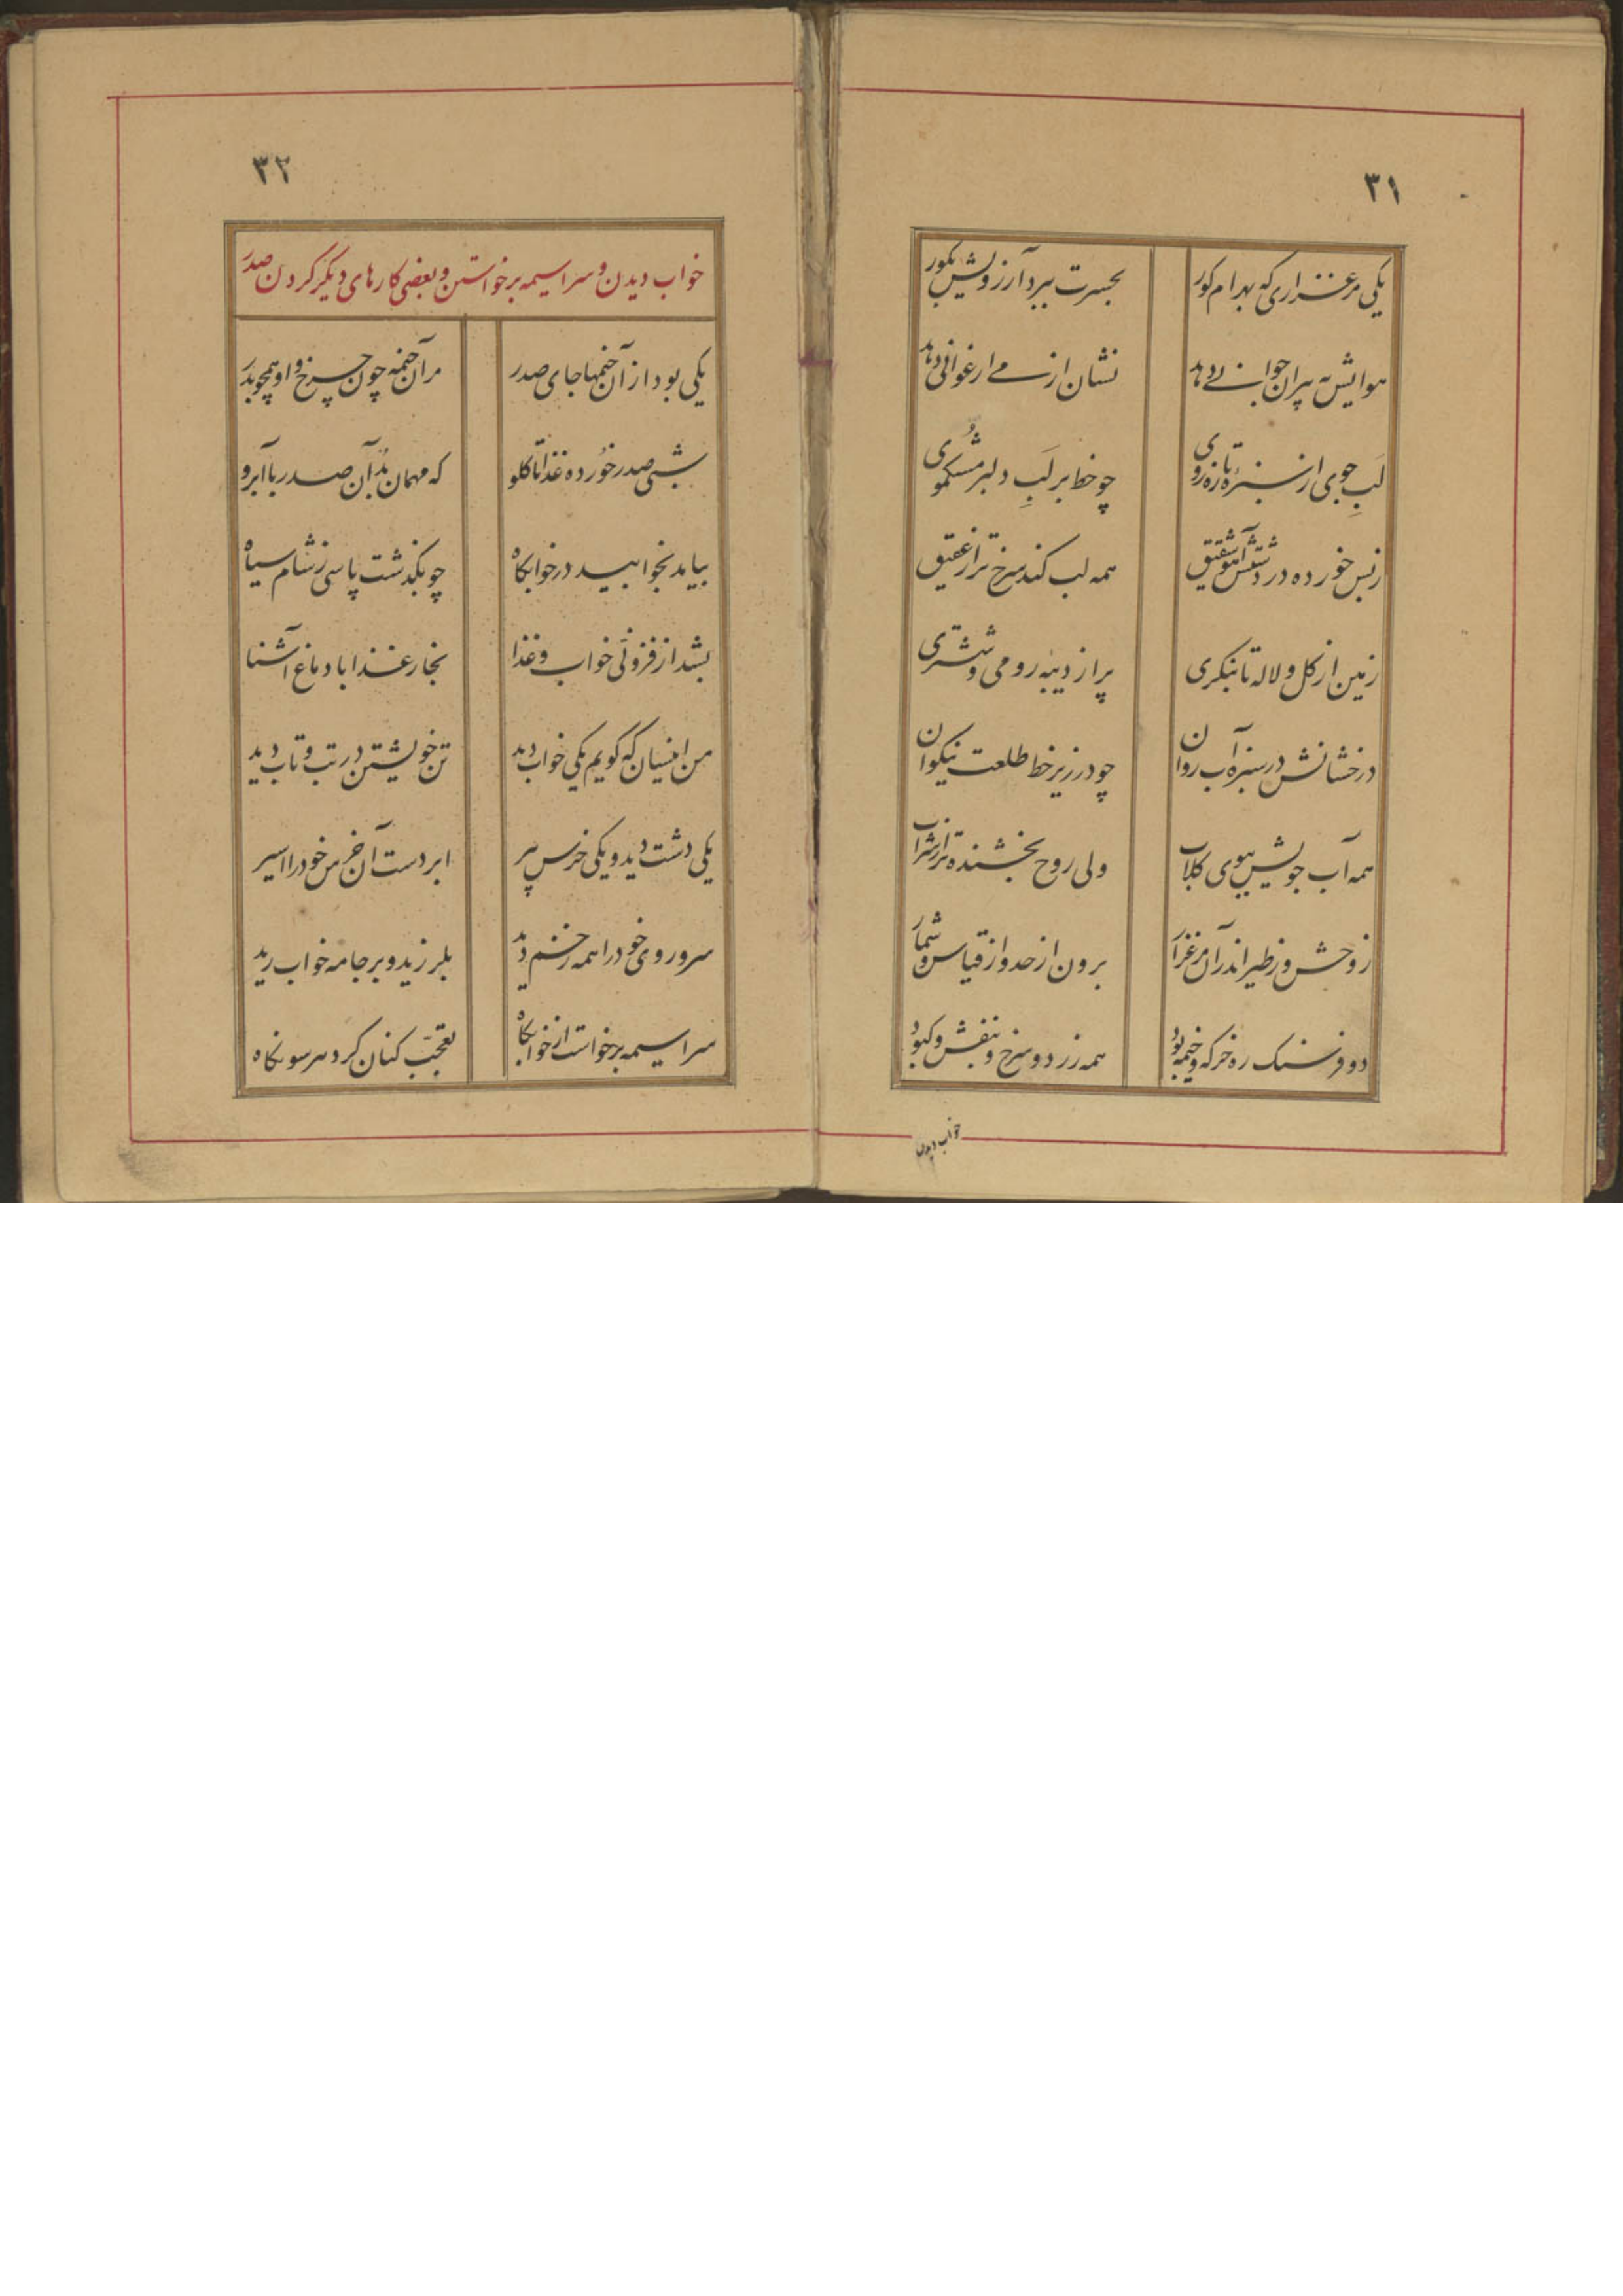 ۳۱
یکی مرغزاری که بهرام کور بحسرت ببرد آرزویش بکور
هوایش به پیران جوانی دهد نشان از می ارغوانی دهد
لَبِ جوی از سبزهٔ تازه روی چو خط بر لَبِ دلبر مشکموی
ز بس خورده در دشتش آهو شقیق همه لب کند سرخ تر از عقیق
زمین از کل و لاله تا بنکری پر از دیبهٔ رومی و ششتری
درخشانش در سبزه آب روان چو در زیر خط طلعت نیکوان
همه آب جویش ببوی کلاب ولی روح بخشنده تر از شراب
ز وحش و ز طیر اندر آن مرغزار برون از حد و از قیاس و شمار
دو فرسنک ره خرکه و خیمه بود همه زرد و سرخ و بنفش و کبود
خواب دیدن
۳۲
خواب دیدن و سراسیمه برخواستن و بعضی کارهای دیکر کردن صدر
یکی بود از آن خیمها جای صدر مر آن خیمه چون چرخ و او همچو بدر
شبی صدر خُورده غذا تا کلو که مهمان بُد آن صدر با آبرو
بیامد بخوابید در خوابکاه چو بکذشت پاسی ز شام سیاه
بشد از فزونی خواب و غذا بخار غذا با دماغ آشنا
من اینسان که کویم یکی خواب دید تن خویشتن در تب و تاب دید
یکی دشت دید و یکی خرس پیر ابر دست آن خرس خود را اسیر
سر و روی خود را همه زخم دید بلرزید و بر جامه خواب رید
سراسیمه برخواست از خوابکاه تعجّب کنان کرد هر سو نکاه